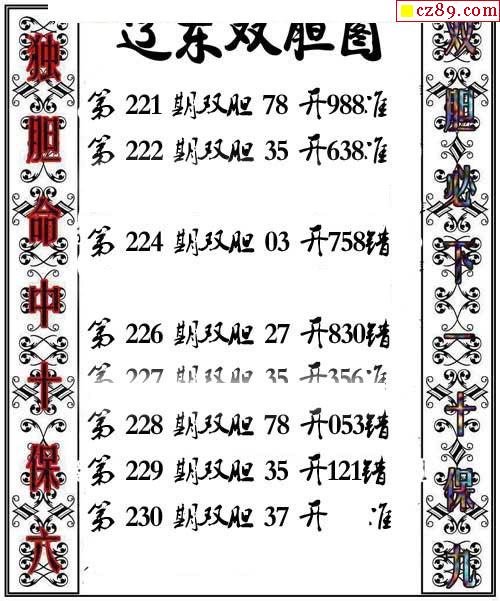 cz89.com
辽东双胆图
独胆命中十保六
第 221 期双胆 78 开988准
第 222 期双胆 35 开638准
第 224 期双胆 03 开758错
第 226 期双胆 27 开830错
第 227 期双胆 35 开356准
第 228 期双胆 78 开053错
第 229 期双胆 35 开121错
第 230 期双胆 37 开 准
双胆必下一十保九